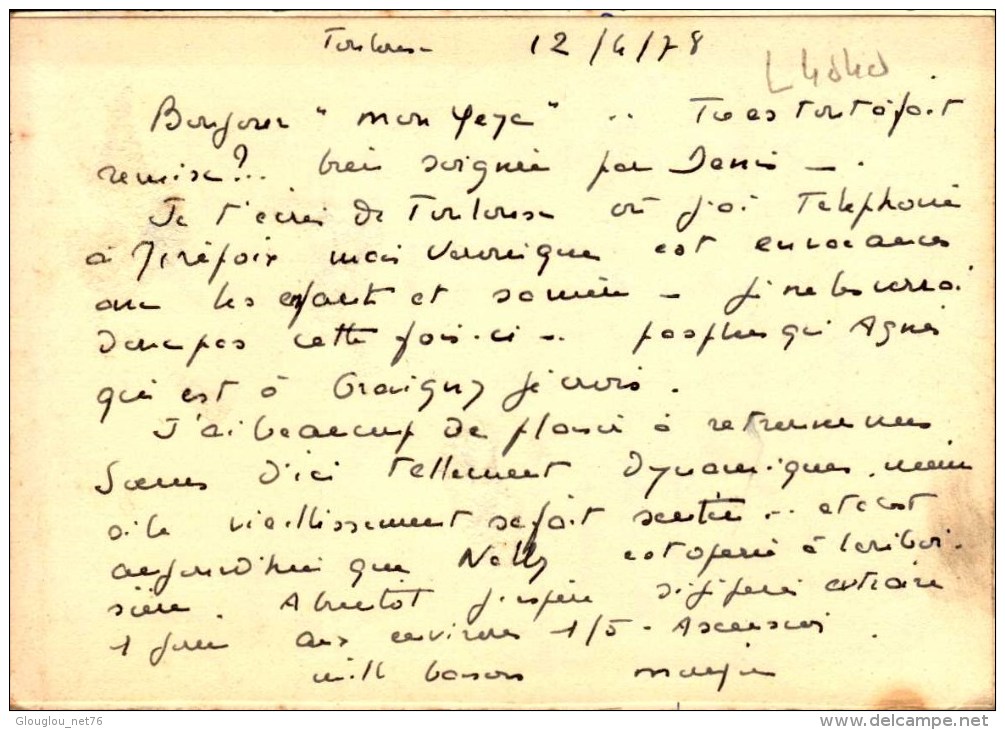 Toulouse 12/4/78
Bonjour "mon " .. Tu es tout à fait
remise?.. bien soignée par Denis - .
Je t'écris de Toulouse où j'ai Téléphoné
à Mirepoix mais Véronique est en vacances
avec les enfants et - je ne les verrai
donc pas cette fois-ci - .. pas plus qu' Agnès
qui est à Gravigny je crois .
J'ai beaucoup de plaisir à retrouver mes
Soeurs d'ici tellement Dynamiques, même
si le vieillissement se fait sentir .. et c'est
aujourd'hui que Nelly est opérée à Lariboi-
sière. A bientôt j'espère si je peux extraire
1 jour aux environs 1/5 - Ascension
mille baisers
Glouglou_net76
www.delcampe.net